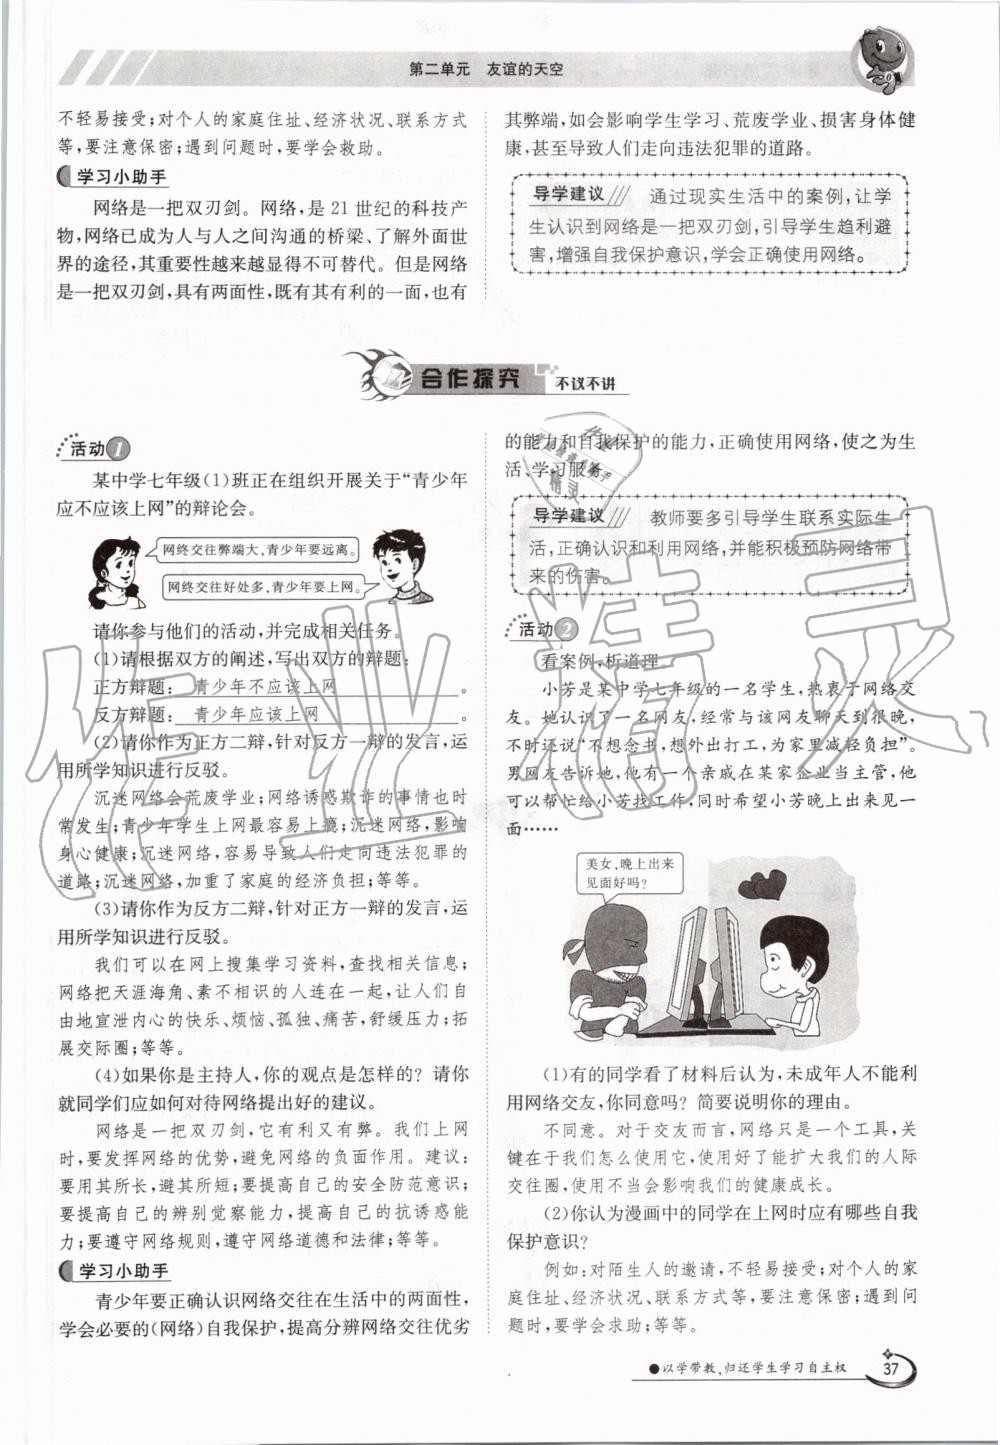 第二单元 友谊的天空
不轻易接受;对个人的家庭住址、经济状况、联系方式
等,要注意保密;遇到问题时,要学会救助。
学习小助手
网络是一把双刃剑。网络,是 21 世纪的科技产
物,网络已成为人与人之间沟通的桥梁、了解外面世
界的途径,其重要性越来越显得不可替代。但是网络
是一把双刃剑,具有两面性,既有其有利的一面,也有
其弊端,如会影响学生学习、荒废学业、损害身体健
康,甚至导致人们走向违法犯罪的道路。
导学建议 通过现实生活中的案例,让学
生认识到网络是一把双刃剑,引导学生趋利避
害,增强自我保护意识,学会正确使用网络。
合作探究 不议不讲
活动1
某中学七年级(1)班正在组织开展关于“青少年
应不应该上网”的辩论会。
网终交往弊端大,青少年要远离。
网终交往好处多,青少年要上网。
请你参与他们的活动,并完成相关任务。
(1)请根据双方的阐述,写出双方的辩题:
正方辩题: 青少年不应该上网 。
反方辩题: 青少年应该上网 。
(2)请你作为正方二辩,针对反方一辩的发言,运
用所学知识进行反驳。
沉迷网络会荒废学业;网络诱惑欺诈的事情也时
常发生;青少年学生上网最容易上瘾;沉迷网络,影响
身心健康;沉迷网络,容易导致人们走向违法犯罪的
道路;沉迷网络,加重了家庭的经济负担;等等。
(3)请你作为反方二辩,针对正方一辩的发言,运
用所学知识进行反驳。
我们可以在网上搜集学习资料,查找相关信息;
网络把天涯海角、素不相识的人连在一起,让人们自
由地宣泄内心的快乐、烦恼、孤独、痛苦,舒缓压力;拓
展交际圈;等等。
(4)如果你是主持人,你的观点是怎样的? 请你
就同学们应如何对待网络提出好的建议。
网络是一把双刃剑,它有利又有弊。我们上网
时,要发挥网络的优势,避免网络的负面作用。建议:
要用其所长,避其所短;要提高自己的安全防范意识;
要提高自己的辨别觉察能力,提高自己的抗诱惑能
力;要遵守网络规则,遵守网络道德和法律;等等。
学习小助手
青少年要正确认识网络交往在生活中的两面性,
学会必要的(网络)自我保护,提高分辨网络交往优劣
的能力和自我保护的能力,正确使用网络,使之为生
活、学习服务。
导学建议 教师要多引导学生联系实际生
活,正确认识和利用网络,并能积极预防网络带
来的伤害。
活动2
看案例,析道理。
小芳是某中学七年级的一名学生,热衷于网络交
友。她认识了一名网友,经常与该网友聊天到很晚,
不时还说“不想念书,想外出打工,为家里减轻负担”。
男网友告诉她,他有一个亲戚在某家企业当主管,他
可以帮忙给小芳找工作,同时希望小芳晚上出来见一
面……
美女,晚上出来
见面好吗?
(1)有的同学看了材料后认为,未成年人不能利
用网络交友,你同意吗? 简要说明你的理由。
不同意。对于交友而言,网络只是一个工具,关
键在于我们怎么使用它,使用好了能扩大我们的人际
交往圈,使用不当会影响我们的健康成长。
(2)你认为漫画中的同学在上网时应有哪些自我
保护意识?
例如:对陌生人的邀请,不轻易接受;对个人的家
庭住址、经济状况、联系方式等,要注意保密;遇到问
题时,要学会求助;等等。
●以学带教,归还学生学习自主权
37
作业精灵